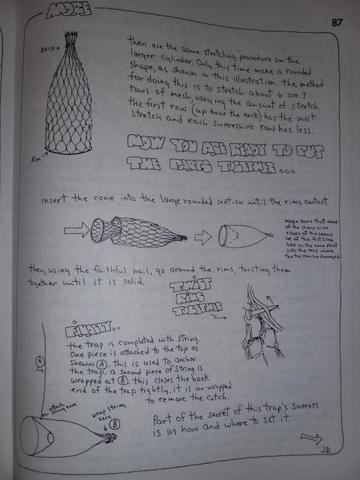 MORE
87
Neck
Rim
then use the same stretching procedure on the
larger cylinder. Only this time make a rounded
shape, as shown in this illustration. The method
for doing this is to stretch about 6 or 7
rows of mesh, varying the amount of stretch.
the first row (up near the neck) has the most
stretch and each successive row has less.
NOW YOU ARE READY TO PUT
THE PARTS TOGETHER...
insert the cone into the large rounded section until the rims contact.
make sure that none
of the sharp wire
edges of the
the trap where
then, using the faithful nail, go around the rims, twisting them
together until it is solid.
TWIST
RIMS
TOGETHER
FINALLY..
the trap is completed with string.
One piece is attached to the top as
shown (A). this is used to anchor
the trap. a second piece of string is
wrapped at (B). this closes the back
end of the trap tightly. it is unwrapped
to remove the catch.
A
attach
string here
wrap string
here
B
Part of the secret of this trap's success
is in how and where to set it.
J.D